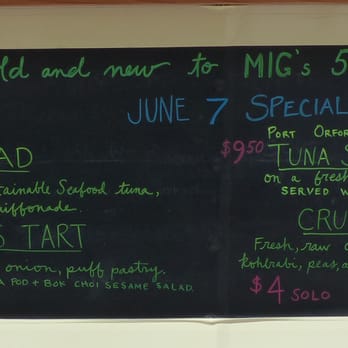 old and new to MIG's 5
JUNE 7 SPECIAL
AD
tainable Seafood tuna,
iffonade.
S TART
onion, puff pastry.
A POD + BOK CHOI SESAME SALAD.
$9.50
PORT ORFOR
TUNA S
on a fresh
SERVED W
CRU
Fresh, raw
kohlrabi, peas, a
$4 SOLO